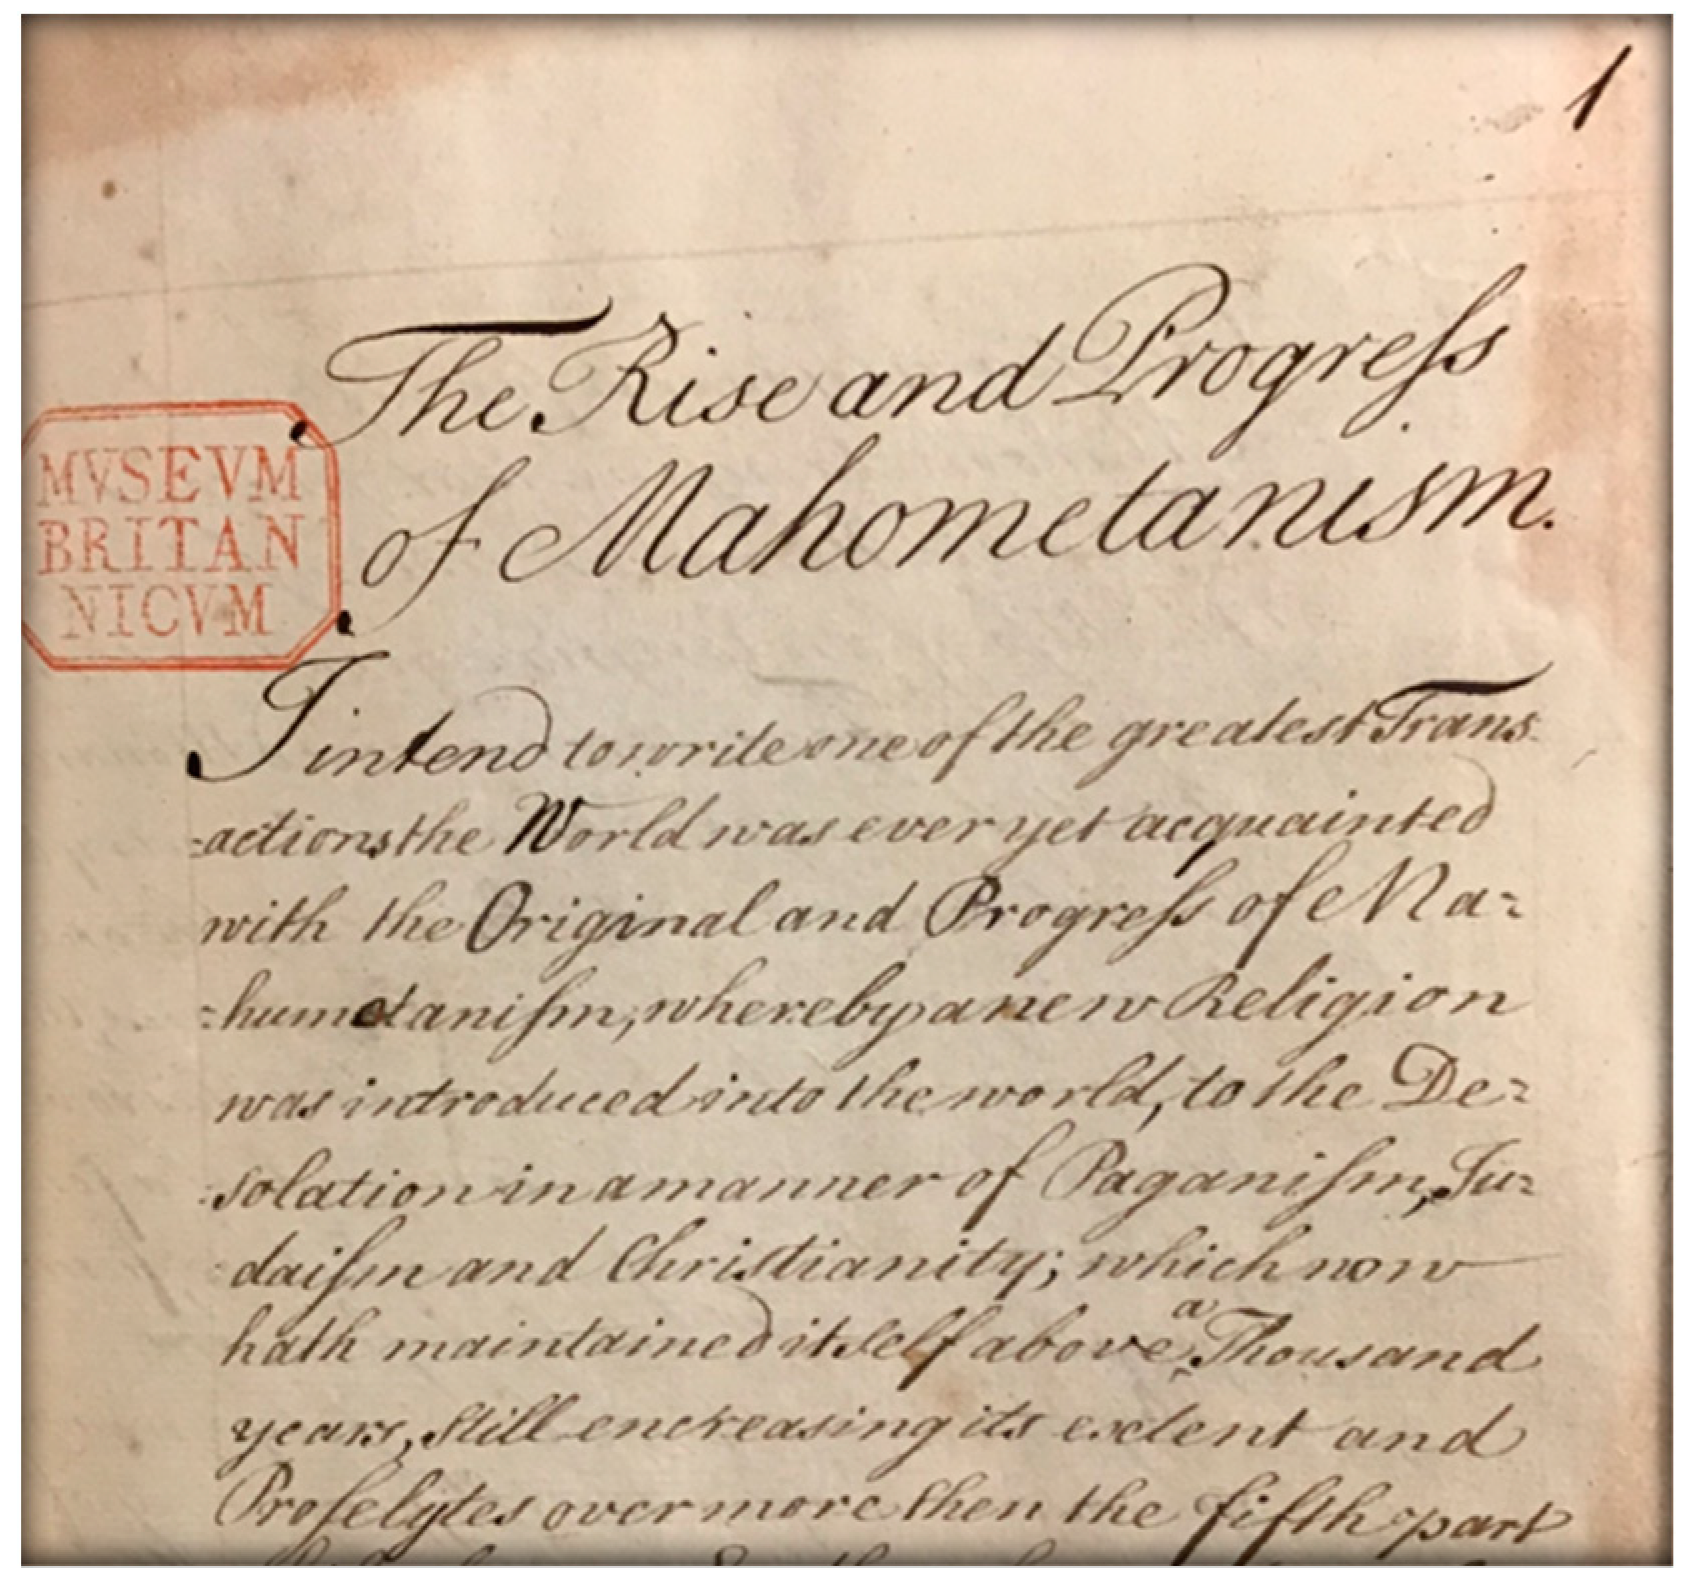 1
The Rise and Progreſs
of Mahometanism.
MVSEVM
BRITAN
NICVM
I intend to write one of the greatest Trans
=actions the World was ever yet acquainted
with the Original and Progreſs of Ma=
=humetaniſm, whereby a new Religion
was introduced into the world, to the De=
solation in a manner of Paganiſm, Ju=
daiſm and Christianity; which now
hath maintained itself above ^a Thousand
years, still encreasing its extent and
Proſelytes over more then the fifth part